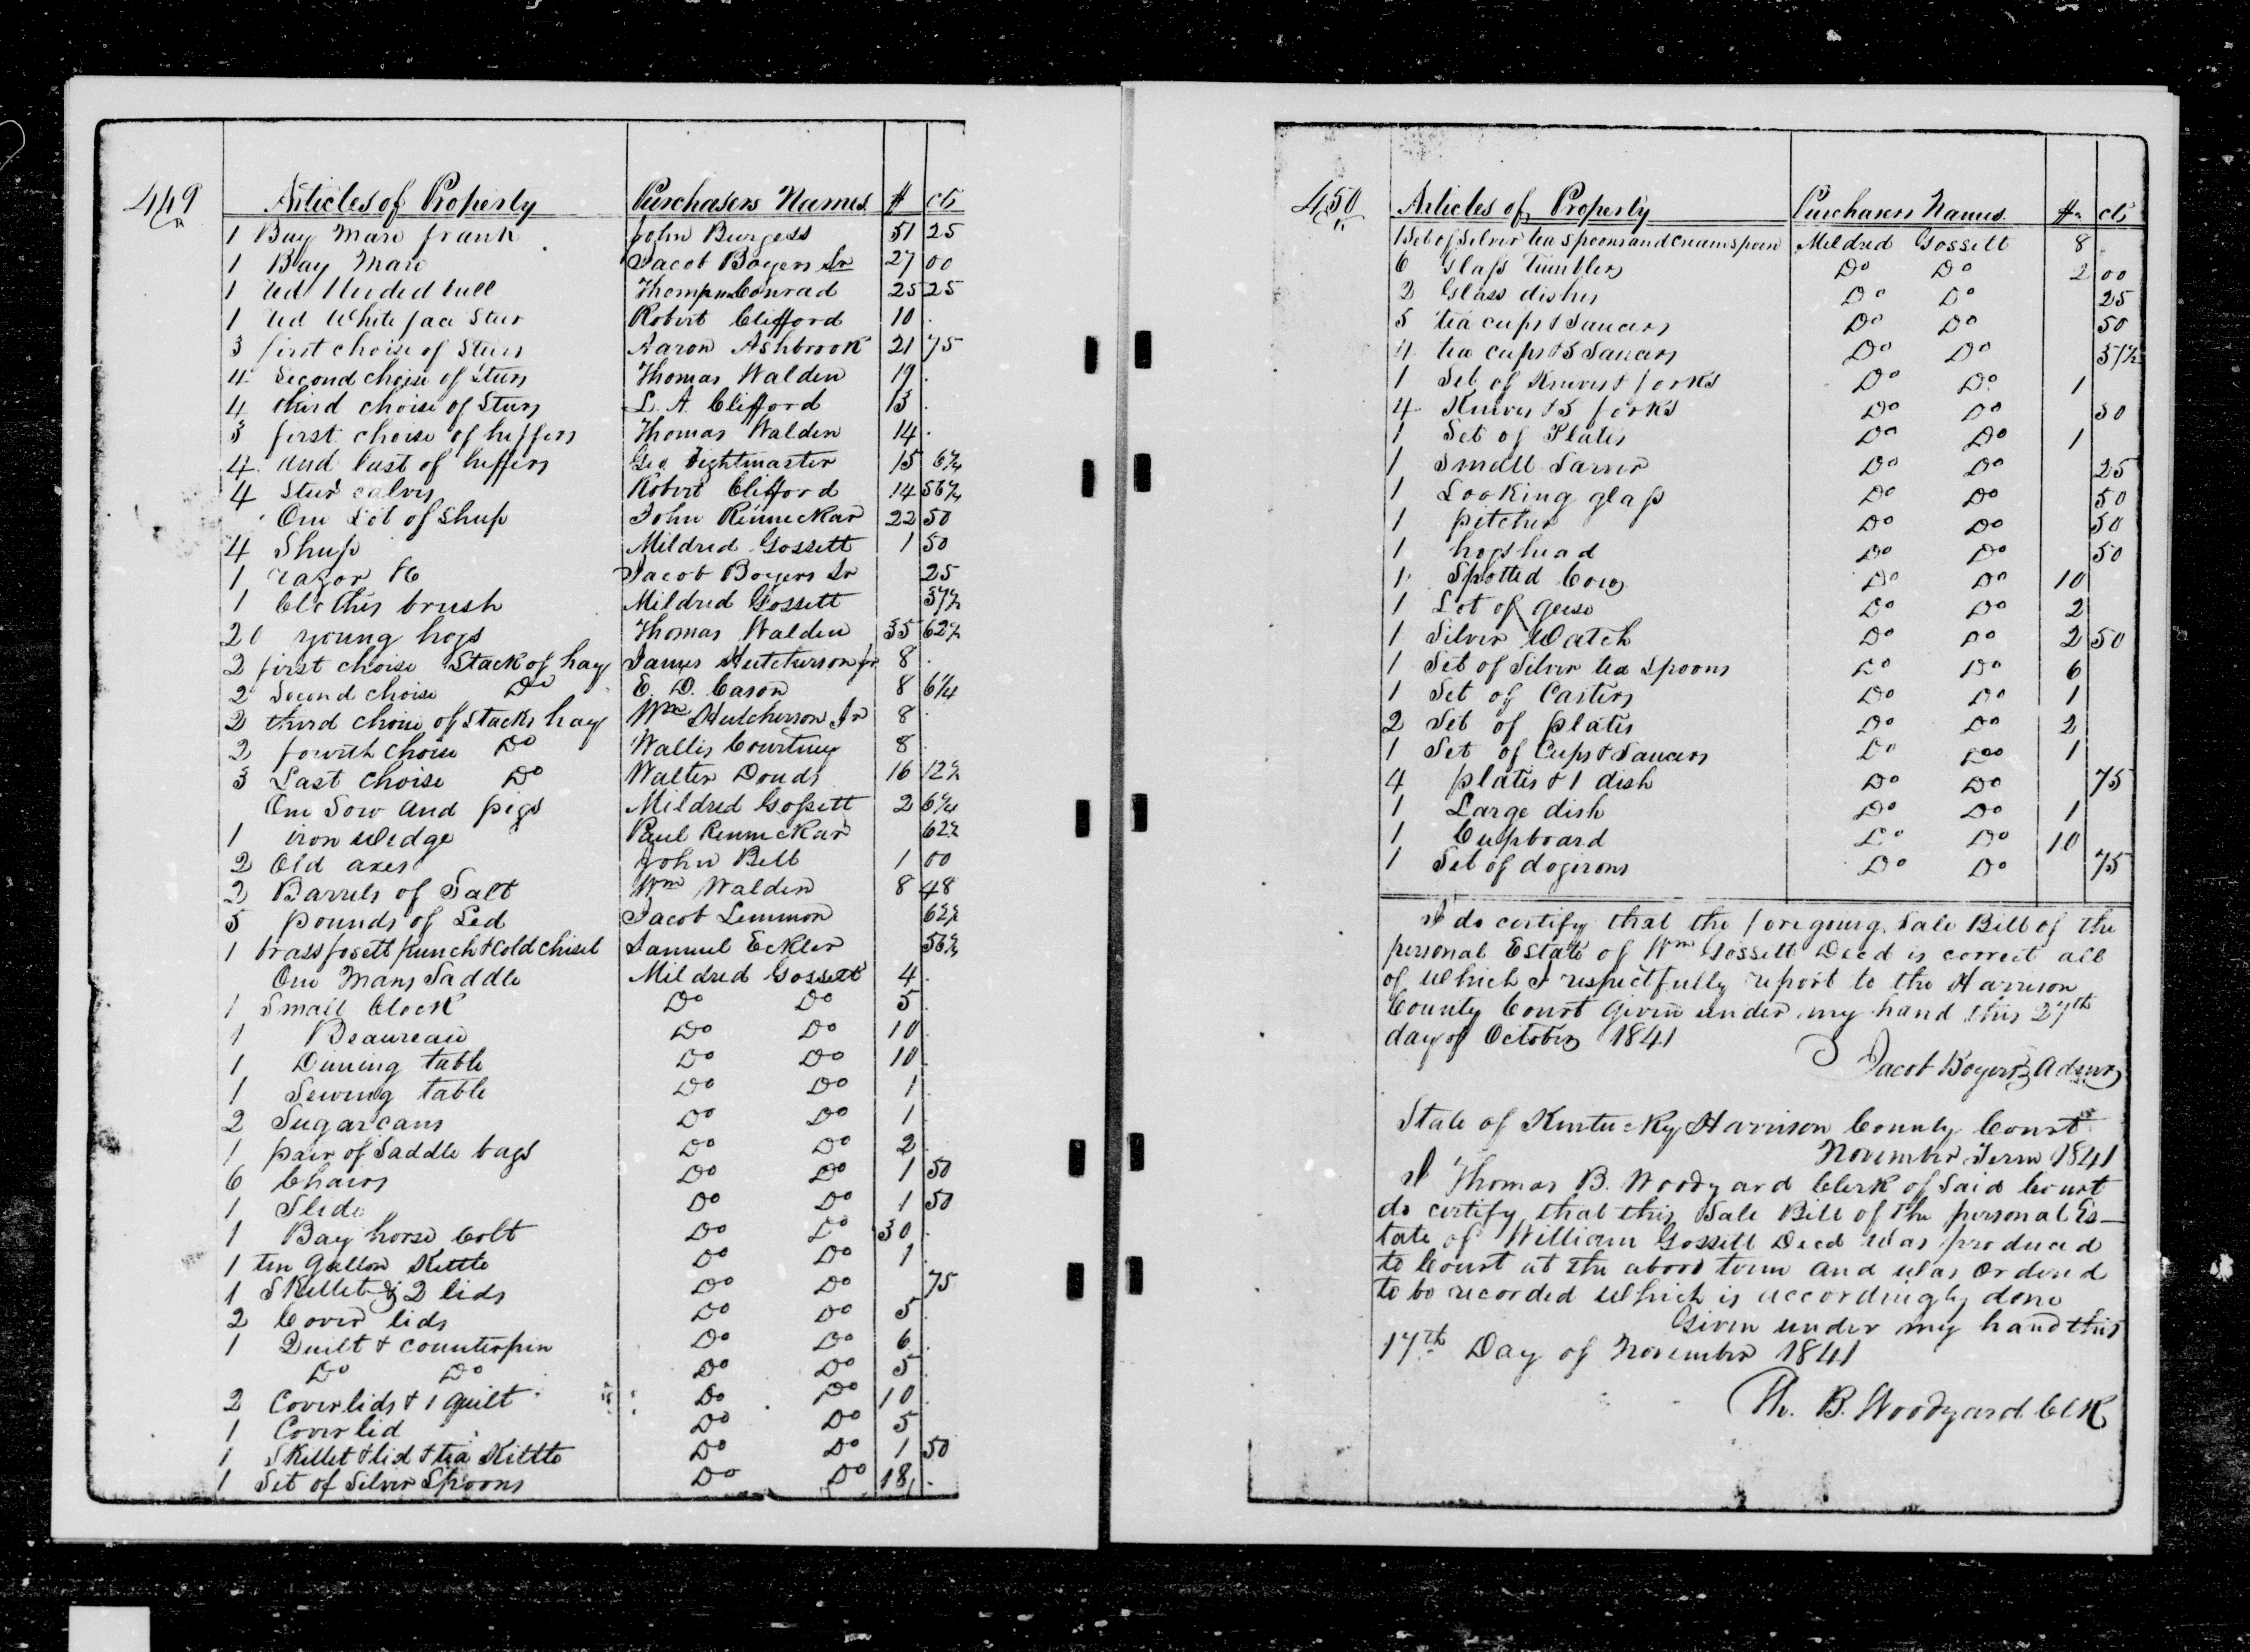 449
Articles of Property Purchasers Names $ cts
1 Bay Mare frank John Burgess 51 25
1 Bay Mare Jacob Boyers Sr 27 00
1 red Heeded bull Thompn Conrad 25 25
1 red White face Steer Robert Clifford 10
3 first choise of Steers Aaron Ashbrook 21 75
4 Second choise of Steers Thomas Walden 19
4 third choise of Steers L. A. Clifford 13
3 first choise of heffers Thomas Walden 14
4 and last of heffers Geo Fightmaster 15 6¼
4 Steer calves Robert Clifford 14 56¼
One Lot of Sheep John Renneckar 22 50
4 Sheep Mildred Gossett 1 50
1 razor &c Jacob Boyers Sr 25
1 Clothes brush Mildred Gossett 37½
20 young hogs Thomas Walden 35 62½
2 first choise Stack of hay James Hutcherson jr 8
2 Second choise Do E. D. Cason 8 6¼
2 third choise of Stacks hay Wm Hutcherson Jr 8
2 fourth choise Do Wallis Courtney 8
3 Last choise Do Walter Douds 16 12½
One Sow and pigs Mildred Gossett 2 6¼
1 iron wedge Paul Renneckar 62½
2 Old axes John Bell 1 00
2 Barrels of Salt Wm Walden 8 48
5 pounds of Led Jacob Lemmon 62½
1 brass fosett punch & cold chisel Samuel Eckler 56¼
One Mans Saddle Mildred Gossett 4
1 Small Clock Do Do 5
1 Beaureau Do Do 10
1 Dining table Do Do 10
1 Sewing table Do Do 1
2 Sugar cans Do Do 1
1 pair of Saddle bags Do Do 2
6 Chairs Do Do 1 50
1 Slide Do Do 1 50
1 Bay horse Colt Do Do 30
1 ten Gallon Kettle Do Do 1
1 Skillet & 2 lids Do Do 75
2 Cover lids Do Do 5
1 Quilt & counterpin Do Do 6
Do Do Do Do 5
2 Coverlids & 1 quilt Do Do 10
1 Coverlid Do Do 5
1 Skillet & lid & tea Kittle Do Do 1 50
1 Set of Silver Spoons Do Do 18
450
Articles of Property Purchasers Names $ cts
1 Set of Silver tea Spoons and cream spoon Mildred Gossett 8
6 Glass tumblers Do Do 2 00
2 Glass dishes Do Do 25
5 tea cups & Saucers Do Do 50
4 tea cups & 5 Saucers Do Do 37½
1 Set of Knives & forks Do Do 1
4 Knives & 5 forks Do Do 50
1 Set of Plates Do Do 1
1 Small Sarver Do Do 25
1 Looking glass Do Do 50
1 pitcher Do Do 50
1 hogshead Do Do 50
1 Spotted Cow Do Do 10
1 Lot of geese Do Do 2
1 Silver Watch Do Do 2 50
1 Set of Silver tea Spoons Do Do 6
1 Set of Casters Do Do 1
2 Set of plates Do Do 2
1 Set of Cups & Saucers Do Do 1
4 plates & 1 dish Do Do 75
1 Large dish Do Do 1
1 Cupboard Do Do 10
1 Set of dogirons Do Do 75
I do certify that the foregoing Sale Bill of the
personal Estate of Wm Gossett Decd is correct all
of which I respectfully report to the Harrison
County Court Given under my hand this 27th
day of October 1841
Jacob Boyers Admr
State of Kentucky Harrison County Court
November Term 1841
I Thomas B. Woodyard Clerk of Said Court
do certify that this Sale Bill of the personal Es-
tate of William Gossett Decd was produced
to Court at the above term and was Ordered
to be recorded which is accordingly done
Given under my hand this
17th Day of November 1841
Th. B. Woodyard Clk